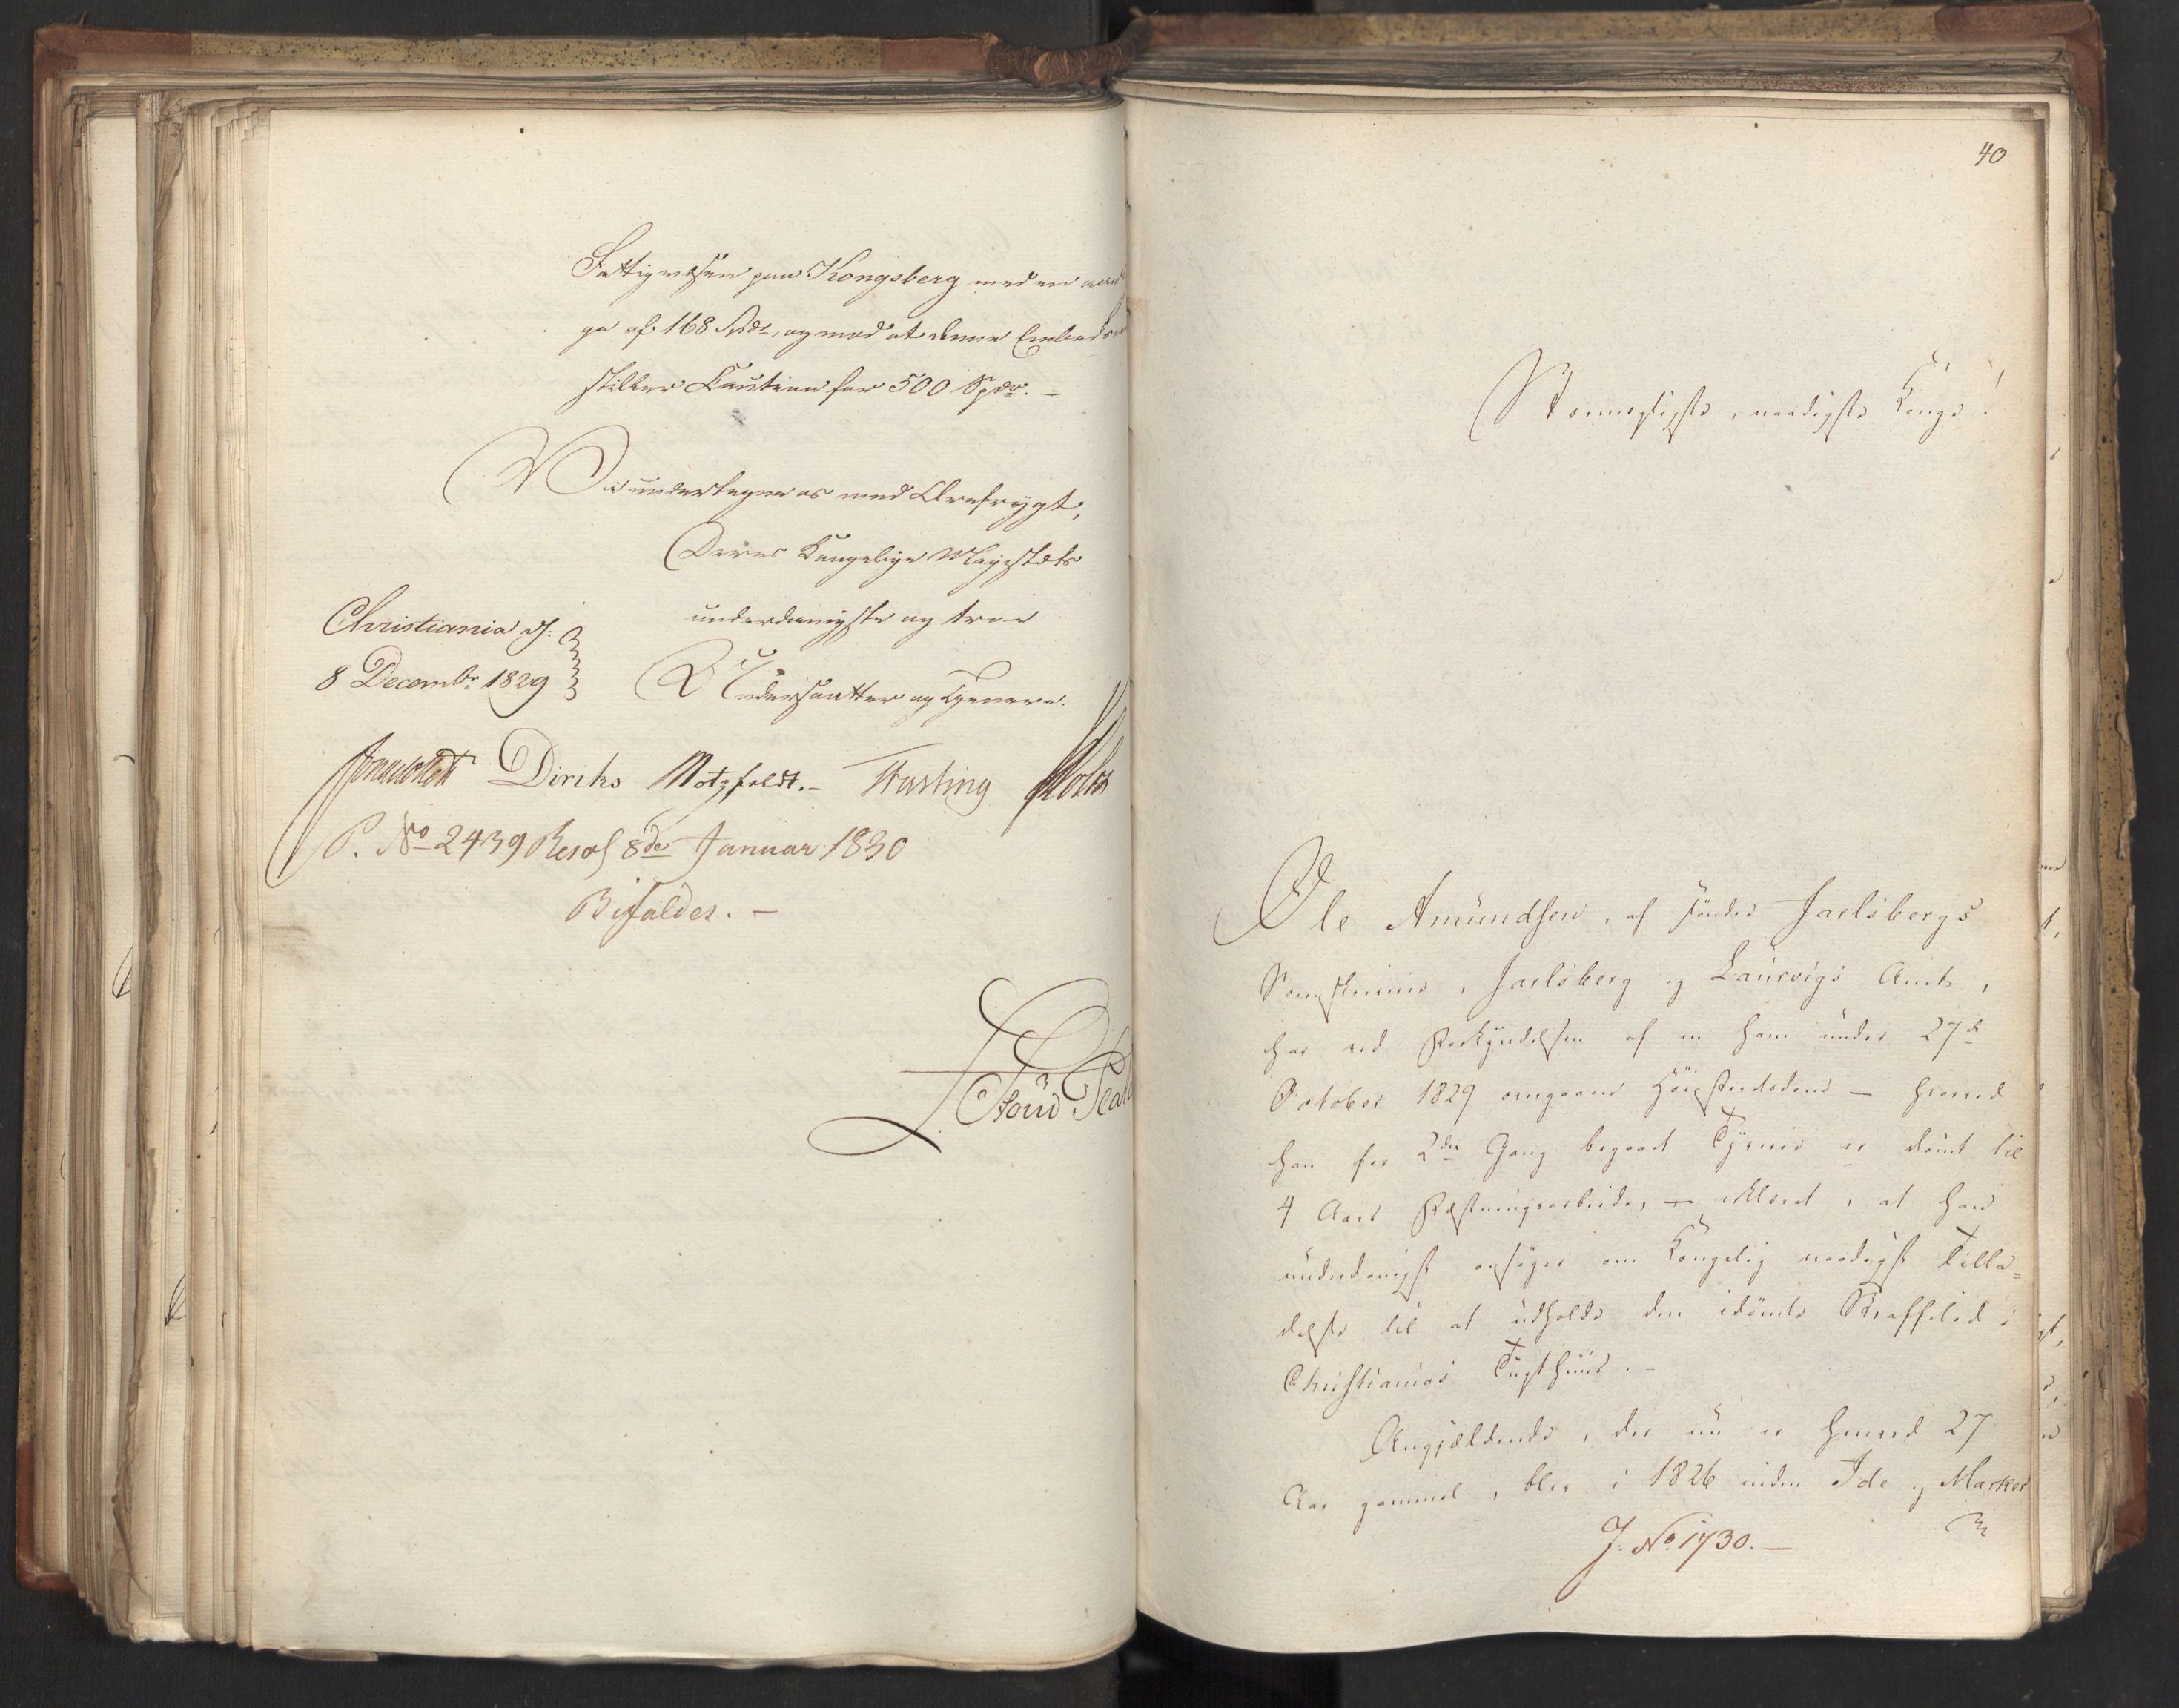 Fattigvæsen paa Kongsberg med en
ge af 168 Spdr, og mod at denne Embeds
stiller Caution for 500 Spdr. –
Vi undertegne os med Ærefrygt,
Deres Kongelige Majestæts
underdanigste og troe
Undersaatter og Tjenere.
Christiania d:
8 Decembr 1829
Diriks Motzfeldt. – Fasting
P. No 2439 Resol 8de Januar 1830
Bifaldes. –
40
Stormægtigste, naadigste Konge!
Ole Amundsen, af søndre Jarlsbergs
Sorenskriverie, Jarlsberg og Laurvigs Amt,
har ved Forkyndelsen af en ham under 27de
October 1829 overgaaen Høiesteretsdom – hvorved
han for 2den Gang begaaet Tyverie er dømt til
4 Aars Fæstningsarbeide, – erklæret, at han
underdanigst ansøger om Kongelig naadigst Tilla=
delse til at udholde den idømte Straffetid i
Christianias Tugthuus. –
Angjældende, der nu er henved 27
Aar gammel, blev i 1826 inden Ide og Marker
J. No. 1730. –